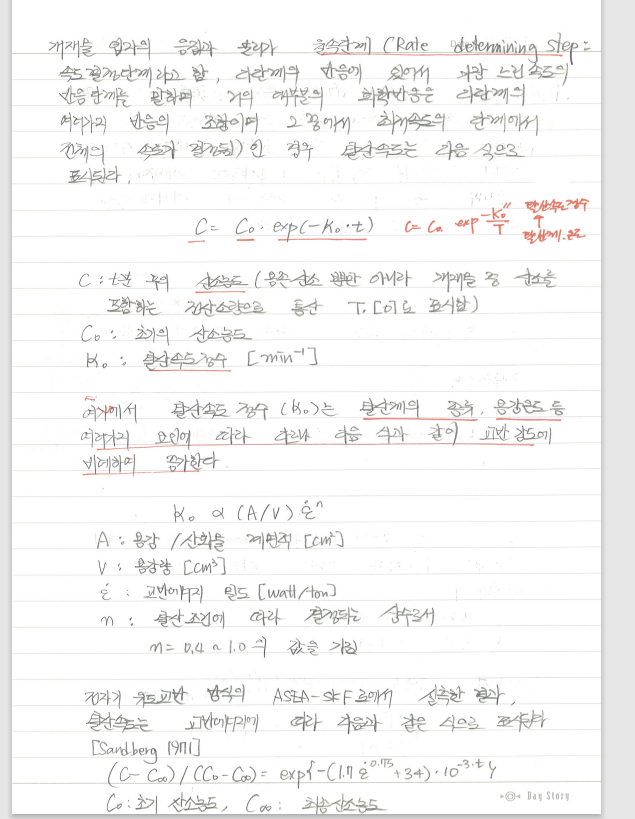 개재물 입자의 응집과 분리가 율속단계 (Rate determining step:
속도결정단계라고 함, 다단계의 반응에 있어서 가장 느린 속도의
반응단계를 말하며 거의 대부분의 화학반응은 다단계의
여러가지 반응의 조합이며 그 중에서 최저속도의 단계에서
전체의 속도가 결정됨) 인 경우 탈산속도는 다음 식으로
표시된다.
C = C₀ · exp(-K₀·t) C = C₀ exp -K₀″/T 탈산속도정수
탈산제.온도
C : t분 후의 산소농도 (용존산소 뿐만 아니라 개재물 중 산소를
포함하는 전산소량으로 통상 T.[O]로 표시함)
C₀ : 초기의 산소농도
K₀ : 탈산속도정수 [min⁻¹]
여기에서 탈산속도 정수 (K₀)는 탈산제의 종류, 용강온도 등
여러가지 요인에 따라 다르나 다음 식과 같이 교반강도에
비례하여 증가한다
K₀ ∝ (A/V) ε̇ⁿ
A : 용강/산화물 계면적 [cm²]
V : 용강량 [cm³]
ε̇ : 교반에너지 밀도 [watt/ton]
n : 탈산조건에 따라 결정되는 상수로서
n = 0.4 ~ 1.0의 값을 가짐
전자기 유도교반 방식의 ASEA-SKF로에서 실측한 결과,
탈산속도는 교반에너지에 따라 다음과 같은 식으로 표시된다
[Sandberg 1971]
(C-C∞)/(C₀-C∞) = exp{-(1.7 ε̇^0.75+34)·10⁻³·t}
C₀ : 초기 산소농도, C∞ : 최종산소농도
Day Story